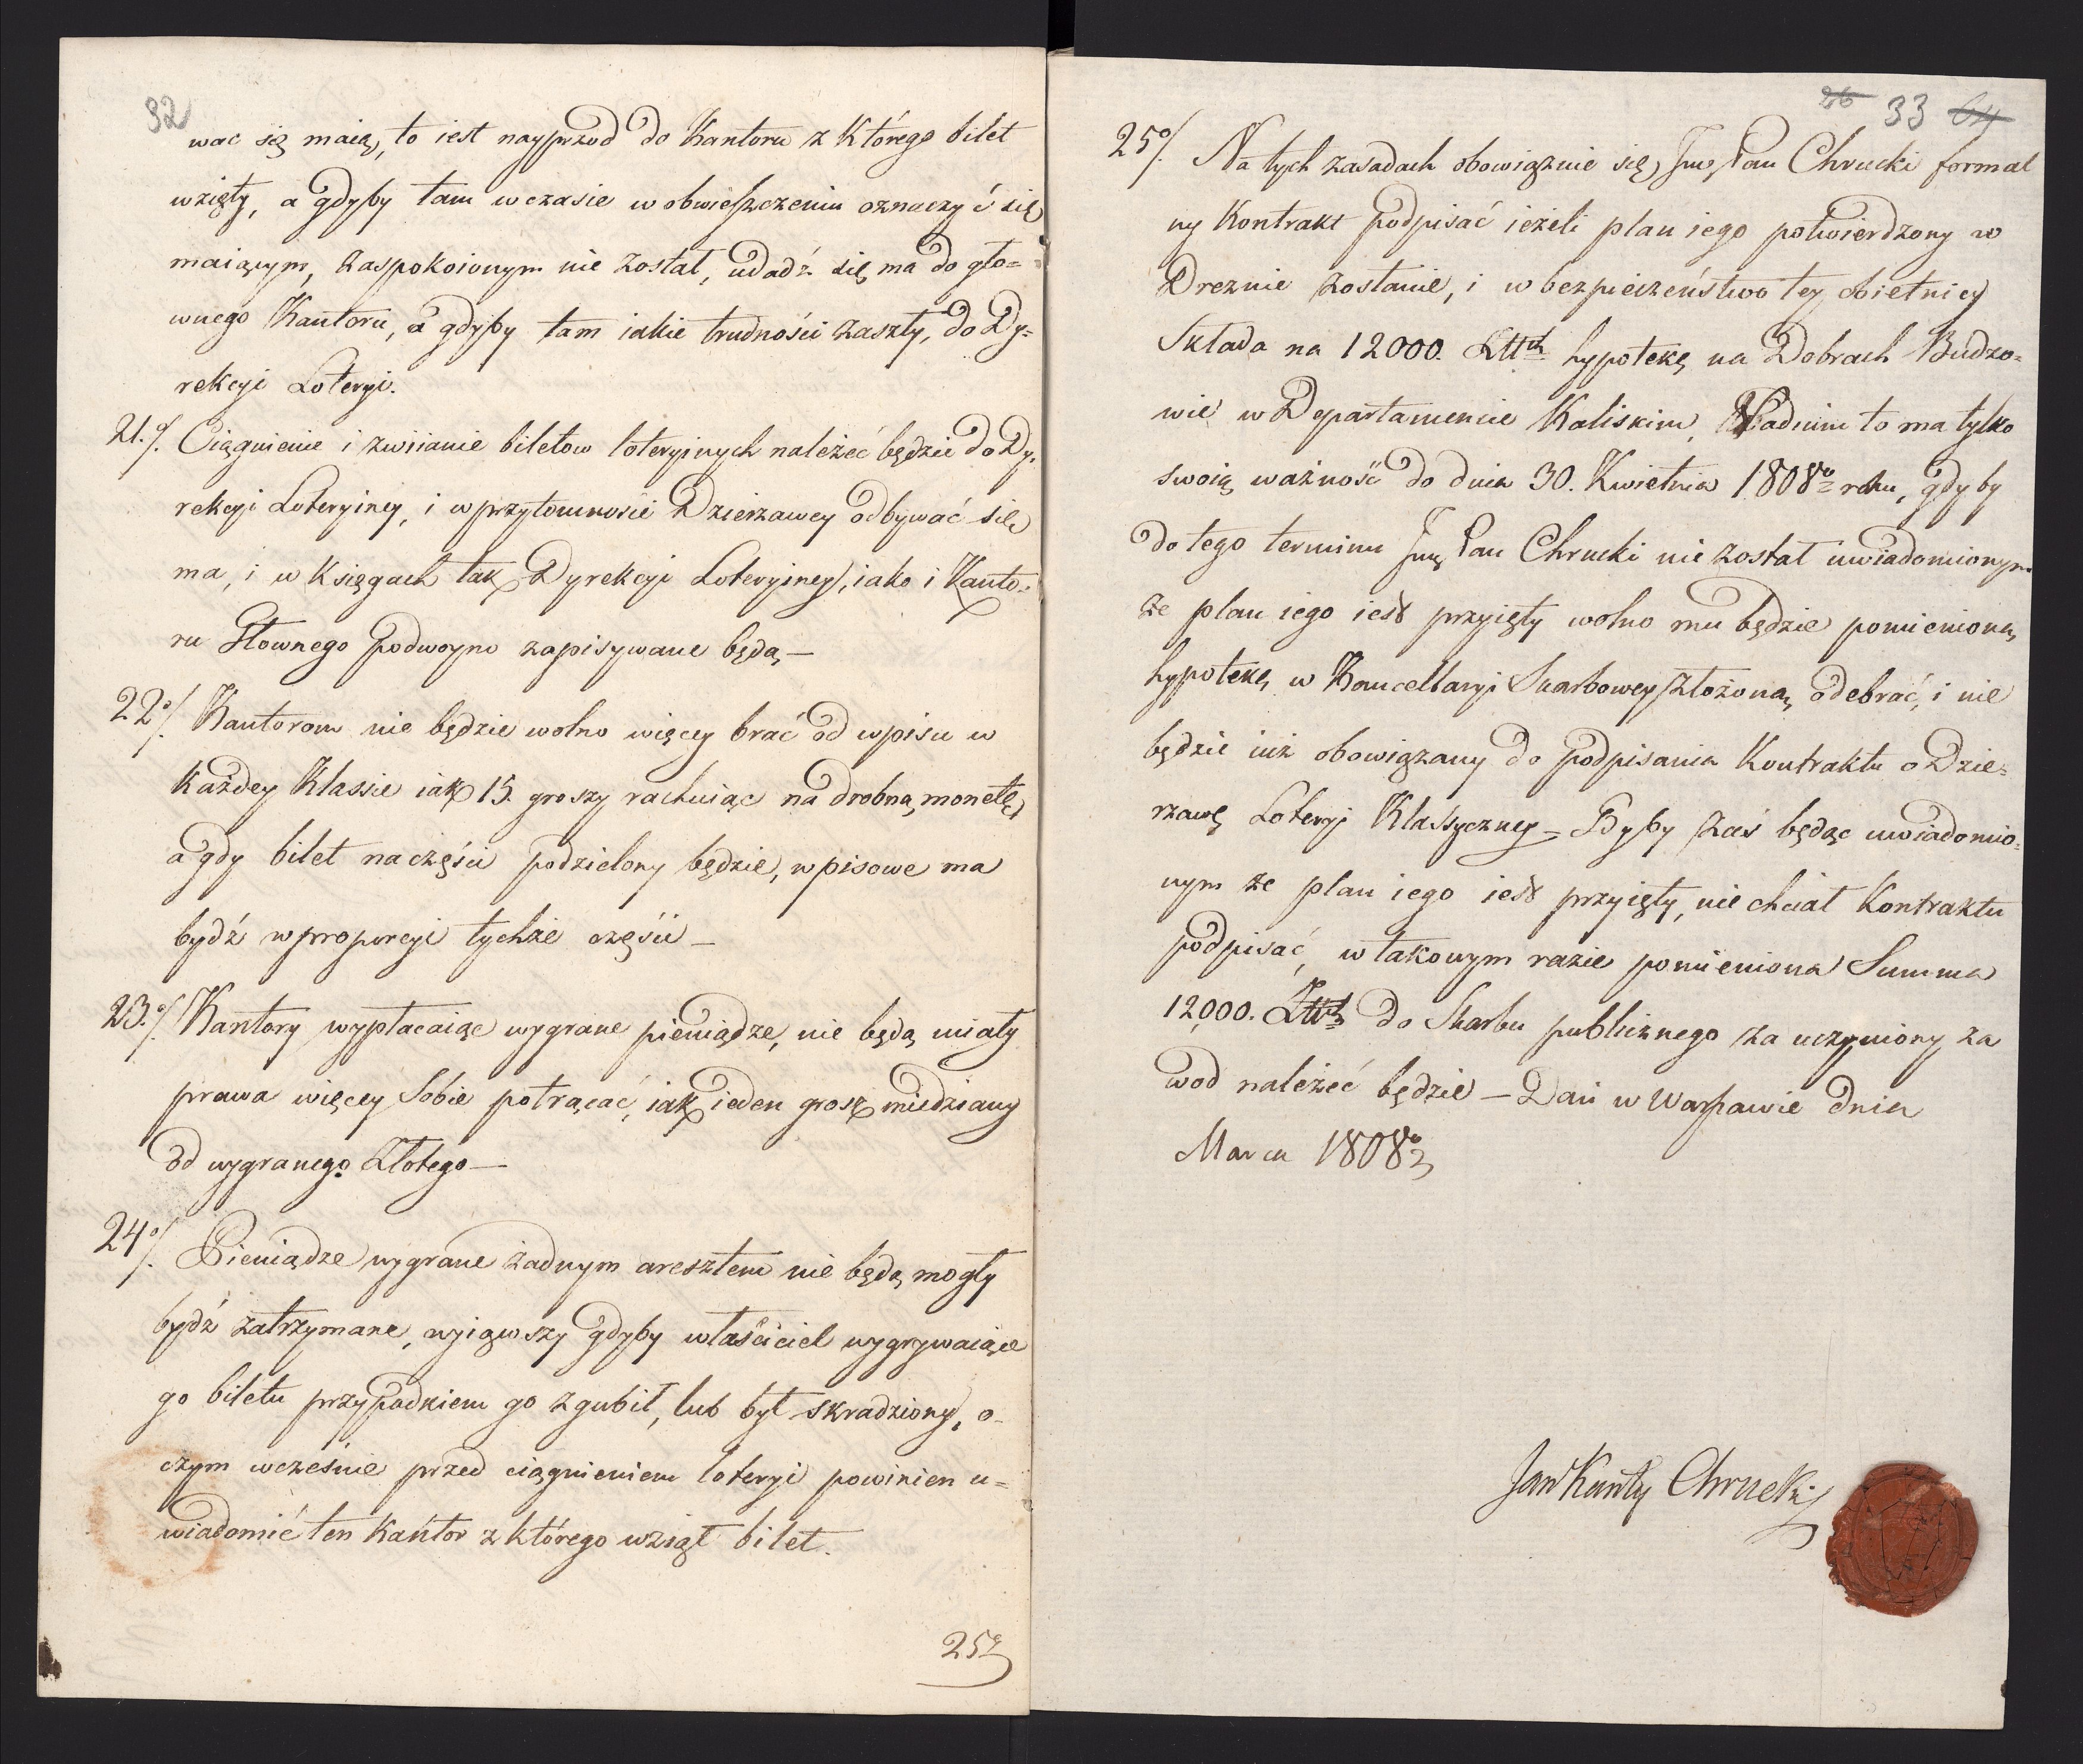 32
wac się maią, to iest nayprzod do Kantoru z Którego bilet
wzięty, a gdyby tam w czasie w obwieszczeniu oznaczyć się
maiącym, zaspokoionym nie został, udadź się ma do gło=
wnego Kantoru, a gdyby tam iakie trudności zaszły, do Dy=
rekcyi Loteryi.
21.o/. Ciągnienie i zwiianie biletow loteryinych należeć będzie do Dy=
rekcyi Loteryiney, i w przytomności Dzierzawcy odbywać się
ma, i w Księgach tak Dyrekcyi Loteryiney, iako i Kanto=
ru Głownego podwoyno zapisywane będą —
22o/. Kantorom nie będzie wolno więcey brać od wpisu w
Każdey Klassie iak 15. groszy rachuiąc na drobną monetę,
a gdy bilet na części podzielony będzie, wpisowe ma
bydź w proporcyi tychże części —
23.o/. Kantory wypłacaiąc wygrane pieniądze, nie będą miały
prawa więcey Sobie potrącać, iak ieden grosz miedziany
od wygranego Złotego —
24o/. Pieniądze wygrane żadnym aresztem nie będą mogły
bydź zatrzymane, wyiąwszy gdyby właściciel wygrywaiące
go biletu przypadkiem go zgubił, lub był skradziony, o
czym wcześnie przed ciągnieniem loteryi powinien u=
wiadomić ten Kantor z którego wziął bilet.
25o
26 33 64
25o/. Na tych zasadach obowiązuie się Jmę Pan Chrucki formal
ny Kontrakt podpisać ieżeli plan iego potwierdzony w
Dreznie zostanie, i w bezpieczeństwo tey obietnicy
Składa na 12000. hypotekę na Dobrach Budzo=
wie w Departamencie Kaliskim, to ma tylko
swoią ważność do dnia 30. Kwietnia 1808o roku, gdyby
do tego terminu Jmę Pan Chrucki nie został uwiadomionym
że plan iego iest przyięty wolno mu będzie pomienioną
hypotekę w Kancellaryi Skarbowey złożoną odebrać, i nie
będzie iuż obowiązany do podpisania Kontraktu o Dzie=
rzawę Loteryi Klassyczney = Gdyby zaś będąc uwiadomio=
nym że plan iego iest przyięty, nie chciał Kontraktu
podpisać, w takowym razie pomieniona Summa
12000. do Skarbu publicznego za uczyniony za
wod należeć będzie — Dan w Warszawie dnia
Marca 1808o
Jan Kanty Chrucki